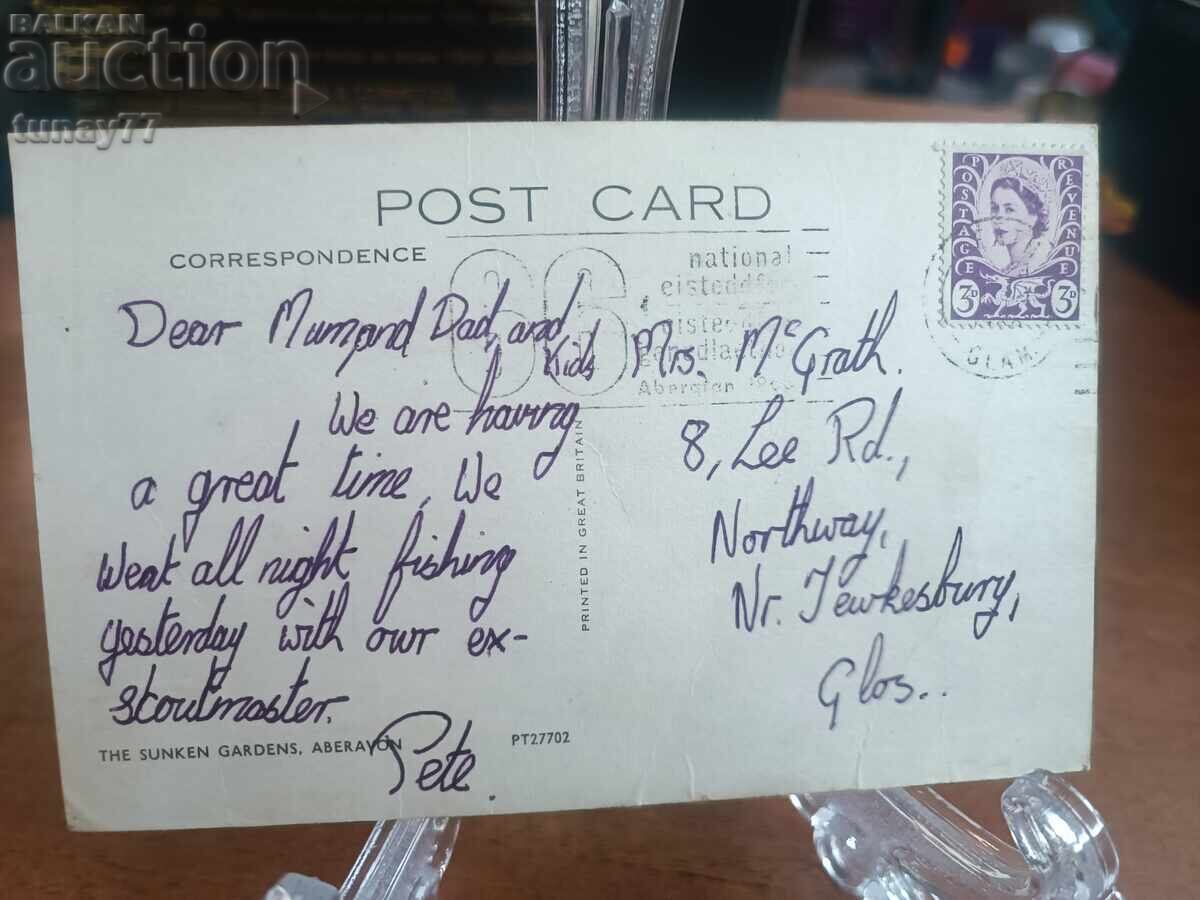 BALKAN
auction
tunay77
POST CARD
CORRESPONDENCE
66
national
Aberafan
POSTAGE
REVENUE
3D
3D
GLAM
Dear Mum and Dad, and
Kids
We are having
a great time, We
Went all night fishing
yesterday with owr ex-
scoutmaster.
Pete.
Mrs. McGrath.
8, Lee Rd.,
Northway,
Nr. Tewkesbury,
Glos..
PRINTED IN GREAT BRITAIN
THE SUNKEN GARDENS, ABERAVON
PT27702